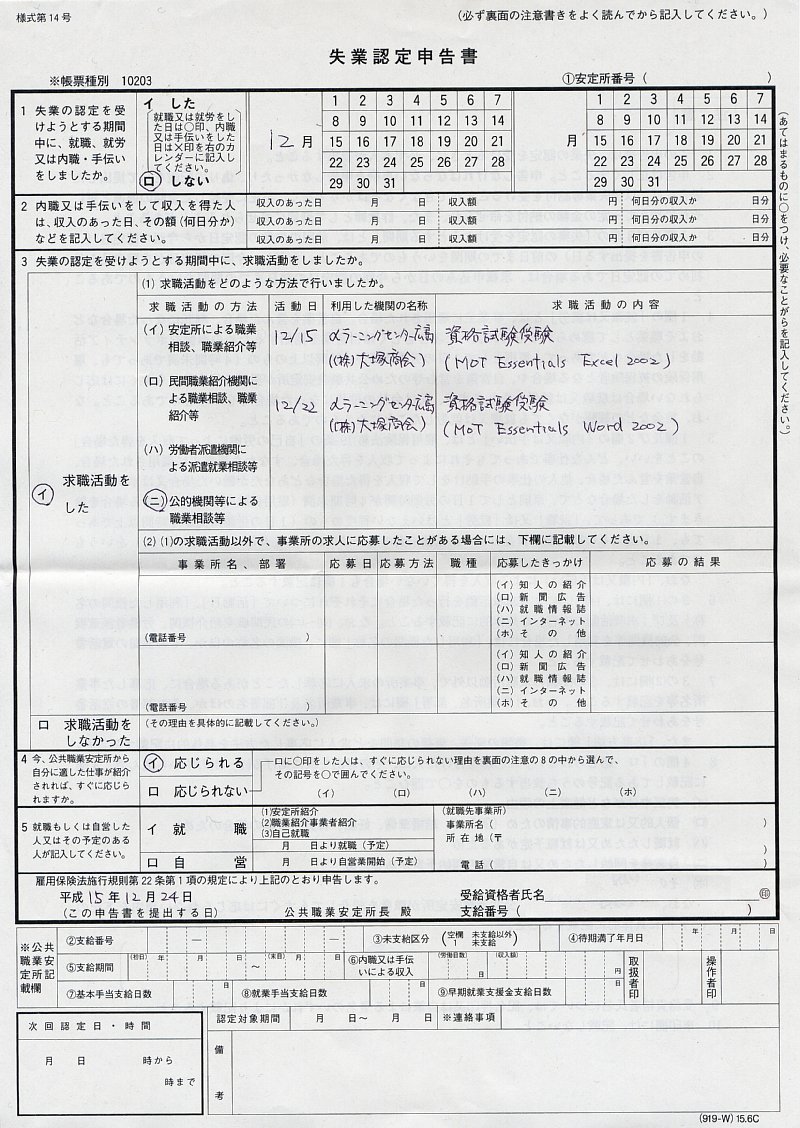 様式第14号
(必ず裏面の注意書きをよく読んでから記入してください。)
失業認定申告書
※帳票種別 10203
①安定所番号 ( )
1 失業の認定を受けようとする期間中に、就職、就労又は内職・手伝いをしましたか。
イ した
就職又は就労をした日は○印、内職又は手伝いをした日は×印を右のカレンダーに記入してください。
ロ しない
12月
1 2 3 4 5 6 7
8 9 10 11 12 13 14
15 16 17 18 19 20 21
22 23 24 25 26 27 28
29 30 31
月
1 2 3 4 5 6 7
8 9 10 11 12 13 14
15 16 17 18 19 20 21
22 23 24 25 26 27 28
29 30 31
(あてはまるものに○をつけ、必要なことがらを記入してください。)
2 内職又は手伝いをして収入を得た人は、収入のあった日、その額(何日分か)などを記入してください。
収入のあった日 月 日 収入額 円 何日分の収入か 日分
収入のあった日 月 日 収入額 円 何日分の収入か 日分
収入のあった日 月 日 収入額 円 何日分の収入か 日分
3 失業の認定を受けようとする期間中に、求職活動をしましたか。
イ 求職活動をした
(1) 求職活動をどのような方法で行いましたか。
求職活動の方法 活動日 利用した機関の名称 求職活動の内容
(イ) 安定所による職業相談、職業紹介等
12/15 αラーニングセンター広島 資格試験受験
((株)大塚商会) (MOT Essentials Excel 2002)
(ロ) 民間職業紹介機関による職業相談、職業紹介等
12/22 αラーニングセンター広島 資格試験受験
((株)大塚商会) (MOT Essentials Word 2002)
(ハ) 労働者派遣機関による派遣就業相談等
(ニ) 公的機関等による職業相談等
(2) (1)の求職活動以外で、事業所の求人に応募したことがある場合には、下欄に記載してください。
事業所名、部署 応募日 応募方法 職種 応募したきっかけ 応募の結果
(イ) 知人の紹介
(ロ) 新聞広告
(ハ) 就職情報誌
(ニ) インターネット
(ホ) その他
(電話番号 )
(イ) 知人の紹介
(ロ) 新聞広告
(ハ) 就職情報誌
(ニ) インターネット
(ホ) その他
(電話番号 )
ロ 求職活動をしなかった
(その理由を具体的に記載してください。)
4 今、公共職業安定所から自分に適した仕事が紹介されれば、すぐに応じられますか。
イ 応じられる
ロ 応じられない
ロに○印をした人は、すぐに応じられない理由を裏面の注意の8の中から選んで、その記号を○で囲んでください。
(イ) (ロ) (ハ) (ニ) (ホ)
5 就職もしくは自営した人又はその予定のある人が記入してください。
イ 就職
(1)安定所紹介
(2)職業紹介事業者紹介
(3)自己就職
月 日より就職(予定)
ロ 自営
月 日より自営業開始(予定)
(就職先事業所)
事業所名( )
所在地(〒 )
電話( )
雇用保険法施行規則第22条第1項の規定により上記のとおり申告します。
平成15年12月24日
(この申告書を提出する日)
公共職業安定所長 殿
受給資格者氏名 印
支給番号( )
※公共職業安定所記載欄
②支給番号 — —
③未支給区分 (空欄 未支給以外 1 未支給)
④待期満了年月日 年 月 日
⑤支給期間 (初日) 年 月 日 ~ (末日) 月 日
⑥内職又は手伝いによる収入 (労働日数) 日 (収入額) 円
取扱者印
操作者印
⑦基本手当支給日数 日
⑧就業手当支給日数 日
⑨早期就業支援金支給日数 日
次回認定日・時間
月 日 時から
時まで
認定対象期間 月 日~ 月 日 ※連絡事項
備考
(919-W) 15.6C